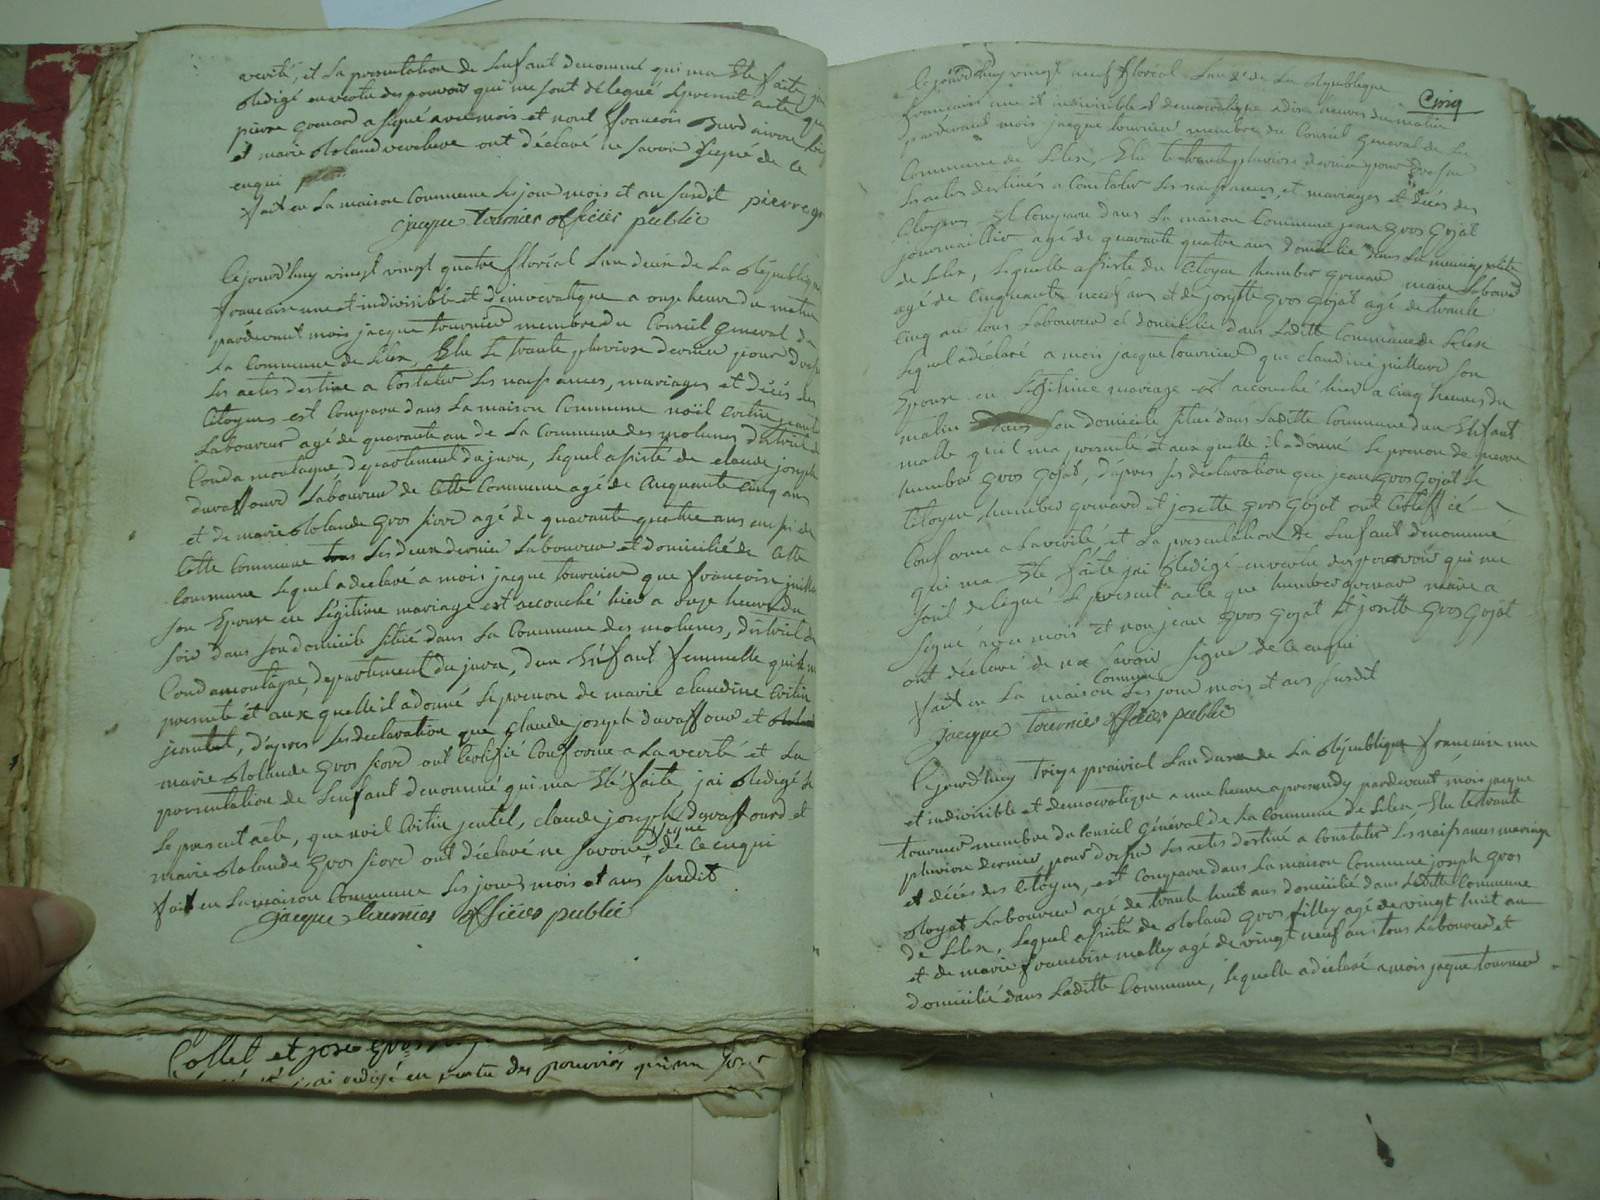 verité, et La presentation de Lenfant denommé qui ma Eté faite jai
Redigé en vertu des pouvoir qui me sont délegué Le present acte que
pierre grenard a signé avec mois et nont francois
et marie Roland ont déclaré ne Savoir Signé de ce
enqui
fait en La maison Commune Les jour mois et an Surdit pierre gr
jacque tournier officiér public
Cejourd'huy vingt vingt quatre floréal Lan deux de La République
francaise une et indivisible et démocratique a onze heure du matin
pardevant mois jacque tournier membre du Conseil General de
La Commune de Lélex, Elu Le trante pluviose dernier pour
Les actes destiné a Constater Les naissances, mariages et décés des
Citoyens est Comparu dans La maison Commune noël
Laboureur agé de quarante an de La Commune des molunes district de
Condamontagne departement du jura, Lequel assisté de claude joseph
duraffourd Laboureur de Cette Commune agé de Cinquante Cinq ans
et de marie Rolande gros fiord agé de quarante quattre ans aussi de
Cette Commune tous Les deux dernier Laboureur et domicilié de Cette
Commune Lequel a declaré a mois jacque tournier que francoise
Son Epouse en Légitime mariage est accouché hier a onze heure du
Soir dans Son domicile Situé dans La Commune des molunes, district de
Condamontagne, departement du jura, dun Enfant femmelle quil ma
presenté et aux quelle il a donné Le prenom de marie claudine
jeantet, d'apres Les declaration que Claude joseph duraffourd et
marie Rolande gros fiord ont Certifié Conforme a La verité et La
presentation de Lenfant denommé qui ma Eté faite, jai Redigé
Le present acte, que noel jentet, claude joseph duraffourd et
Signé
marie Rolande gros fiord ont déclaré ne Savoir de Ce enqui
fait en La maison Commune Les jours mois et ans Surdit
jacque tournier officiér public
Collet et jose gros
jai redigé en vertu des pouvoirs qui me sont
Cinq
Cejourd'huy vingt neuf floréal Lan 2e de La République
francaise une et indivisible et democratique a dix heures du matin
pardevant mois jacque tournier membre du Conseil General de La
Commune de Lélex, Elu Le trante pluviose dernier pour Dresser
Les actes destinés a Constater Les naissances, et mariages et décés des
Citoyens Est Comparu dans La maison Commune jean gros gojat
journaillier agé de quarante quatre ans domicilié dans
de Lélex, Lequelle assisté du Citoyen humber grenard maire Laboureur
agé de Cinquante neuf ans et de josette gros gojat agé de trante
Cinq an tous Laboureur et domicilié dans Laditte Commune de Lelex
Lequel a déclaré a mois jacque tournier que claudine juilliard Son
Epouse en Légitime mariage est accouché hier a cinq heures du
matin dans Son domicile Situé dans Laditte Commune dun Enfant
malle quil ma presenté et aux quelle il a donné Le prenom de pierre
humber gros gojat, d'apres Les déclaration que jean gros gojat Le
Citoyen humber grenard et josette gros gojat ont Certifficé
Conforme a La verité et La presentation de Lenfant denommé
qui ma Eté faite jai Rédigé en vertu des pouvoir qui me
Soit délegué Le present acte que humber grenard maire a
Signé avec mois et non jean gros gojat et josette gros gojat
ont déclaré de ne Savoir Signe de Ce enqui
Commune
fait en La maison Les jour mois et ans Surdit
jacque tournier officier public
Cejourd'huy Treize prairial Lan deux de La République francaise une
et indivisible et democratique a une heure apres mydy pardevant mois jacque
tournier membre du Conseil Général de La Commune de Lélex, Elu Le trante
pluviose dernier, pour dresser Les actes destiné a Constater Les naissances mariage
et décés des Citoyens, est Comparu dans La maison Commune joseph gros
Laboureur agé de trante huit ans domicilié dans Laditte Commune
de Lelex, Lequel assisté de Roland gros fillex agé de vingt huit an
et de marie francoise mollex agé de vingt neuf ans tous Laboureur et
domicilié dans Laditte Commune, Lequelle a déclaré a mois jacque tournier